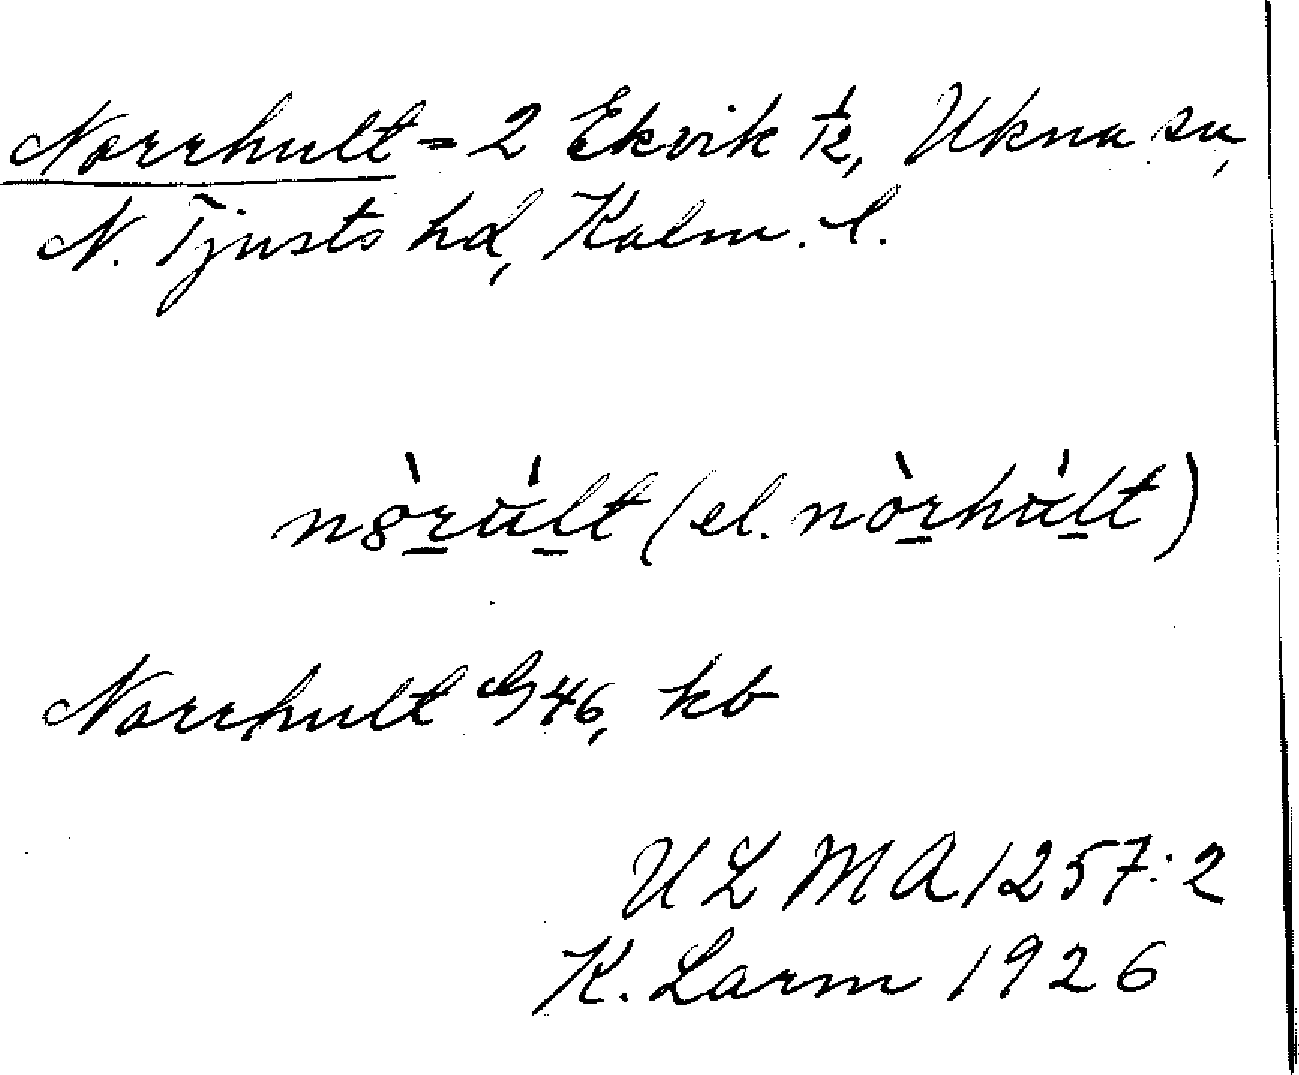 Norrhult = 2 Ekvik 1/2, Ukna sn,
N. Tjusts hd, Kalm. l.
n8̀rúlt (el. nòrhúlt)
Norrhult G46, kb
ULMA 1257:2
K. Larm 1926